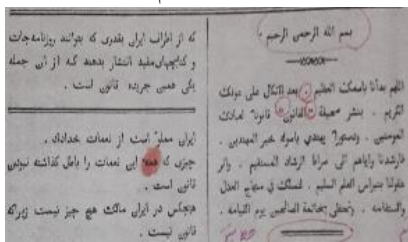 بسم الله الرحمن الرحيم .
اللهم بدأنا باسمك العظيم . بعد اتكال على عونك
الكريم . بنشر صحيفة « القانون » قانونا لعبادك
المومنين . ودستورا يهتدي باصوله خير المهتدين .
فارشدنا واياهم الى صراط الرشاد المستقيم . وانر
عقولنا بنبراس العلم السليم . لنسلك في منهاج العدل
والستقامه . ونحظى بخاتمة الصالحين يوم القيامه .
كه از اطراف ایران بقدری که بتوانند روزنامه جات
و کتابچهای مفید انتشار بدهند که از آن جمله
یکی همین جریده قانون است .
ایران مملو است از نعمات خداداد .
چیزی که همه این نعمات را باطل گذاشته نبودن
قانون است .
هیچکس در ایران مالک هیچ چیز نیست زیرا که
قانون نیست .